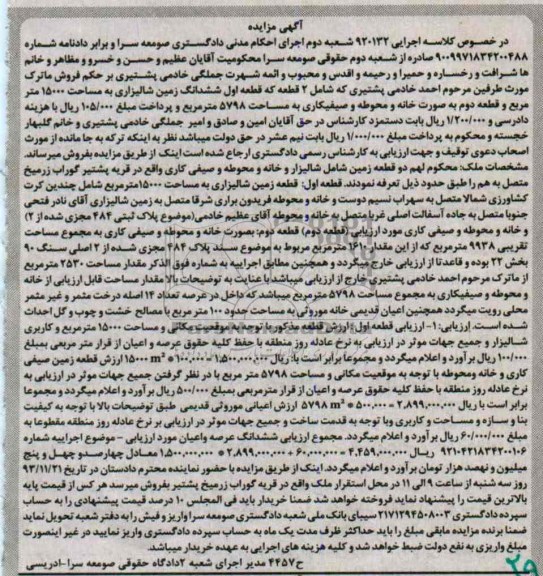 آگهی مزایده
در خصوص کلاسه اجرایی ۹۲۰۱۳۲ شعبه دوم اجرای احکام مدنی دادگستری صومعه سرا و برابر دادنامه شماره
۹۰۰۹۹۷۱۸۳۴۲۰۰۴۸۸ صادره از شعبه دوم حقوقی صومعه سرا محکومیت آقایان عظیم و حسن و خسرو و مظاهر و خانم
ها شرافت و رخساره و حمیرا و رحیمه و اقدس و محبوب و ائمه شهرت جملگی خادمی پشتیری بر حکم فروش ماترک
مورث طرفین مرحوم احمد خادمی پشتیری که شامل ۲ قطعه که قطعه اول ششدانگ زمین شالیزاری به مساحت ۱۵۰۰۰ متر
مربع و قطعه دوم به صورت خانه و محوطه و صیفیکاری به مساحت ۵۷۹۸ مترمربع و پرداخت مبلغ ۱۰۵/۰۰۰ ریال با هزینه
دادرسی و ۱/۲۰۰/۰۰۰ ریال بابت دستمزد کارشناس در حق آقایان امین و صادق و امیر جملگی خادمی پشتیری و خانم گلبهار
خجسته و محکوم به پرداخت مبلغ ۱/۰۰۰/۰۰۰ ریال بابت نیم عشر در حق دولت میباشد نظر به اینکه ترکه به جا مانده از مورث
اصحاب دعوی توقیف و جهت ارزیابی به کارشناس رسمی دادگستری ارجاع شده است اینک از طریق مزایده بفروش میرساند.
مشخصات ملک: محکوم لهم دو قطعه زمین شامل شالیزار و خانه و محوطه و صیفی کاری واقع در قریه پشتیر گوراب زرمیخ
متصل به هم را طبق حدود ذیل تعرفه نمودند. قطعه اول: قطعه زمین شالیزاری به مساحت ۱۵۰۰۰مترمربع شامل چندین کرت
کشاورزی شمالا متصل به سهراب نسیم دوست و خانه و محوطه فریدون براری شرقا متصل به زمین شالیزاری آقای نادر فتحی
جنوبا متصل به جاده آسفالت اصلی غربا متصل به خانه و محوطه آقای عظیم خادمی(موضوع پلاک ثبتی ۴۸۴ مجزی شده از ۲)
و خانه و محوطه و صیفی کاری مورد ارزیابی (قطعه دوم) قطعه دوم: بصورت خانه و محوطه و صیفی کاری به مجموع مساحت
تقریبی ۹۹۳۸ مترمربع که از این مقدار ۱۶۱۰ مترمربع مربوط به موضوع سند پلاک ۴۸۴ مجزی شده از ۲ اصلی سنگ ۹۰
بخش ۲۲ بوده و قاعدتا از ارزیابی خارج میگردد و همچنین مطابق اجراییه به شماره فوق الذکر مقدار مساحت ۲۵۳۰ مترمربع
از ماترک مرحوم احمد خادمی پشتیری خارج از ارزیابی میباشد با عنایت به توضیحات بالا مقدار مساحت قابل ارزیابی از خانه
و محوطه و صیفیکاری به مجموع مساحت ۵۷۹۸ مترمربع میباشد که داخل در عرصه تعداد ۱۴ اصله درخت مثمر و غیر مثمر
محلی رویت میگردد همچنین اعیان قدیمی خانه موروثی به مساحت حدود ۱۰۰ متر مربع با مصالح خشت و چوب و گل احداث
شده است. ارزیابی: ۱- ارزیابی قطعه اول: ارزش قطعه مذکور با توجه به موقعیت مکانی و مساحت ۱۵۰۰۰ مترمربع و کاربری
شالیزار و جمیع جهات موثر در ارزیابی به نرخ عادله روز منطقه با حفظ کلیه حقوق عرصه و اعیان از قرار متر مربعی بمبلغ
۱۰۰/۰۰۰ ریال برآورد و اعلام میگردد و مجموعا برابر است با ریال ۱,۵۰۰,۰۰۰,۰۰۰ = ۱۰۰,۰۰۰ * ۱۵۰۰۰ m² ارزش قطعه زمین صیفی
کاری و خانه ومحوطه با توجه به موقعیت مکانی و مساحت ۵۷۹۸ متر مربع با در نظر گرفتن جمیع جهات موثر در ارزیابی به
نرخ عادله روز منطقه با حفظ کلیه حقوق عرصه و اعیان از قرار مترمربعی بمبلغ ۵۰۰/۰۰۰ ریال برآورد و اعلام میگردد و مجموعا
برابر است با ریال ۲,۸۹۹,۰۰۰,۰۰۰ = ۵۰۰,۰۰۰ * ۵۷۹۸ m² ارزش اعیانی موروثی قدیمی طبق توضیحات بالا با توجه به کیفیت
بنا و سازه و مساحت و کاربری وبا توجه به قدمت ساخت و جمیع جهات موثر در ارزیابی بر نرخ عادله روز منطقه مقطوعا به
مبلغ ۶۰/۰۰۰/۰۰۰ ریال برآورد و اعلام میگردد. مجموع ارزیابی ششدانگ عرصه واعیان مورد ارزیابی - موضوع اجراییه شماره
۹۲۱۰۴۲۱۸۳۴۲۰۰۱۰۶ ریال ۴,۴۵۹,۰۰۰,۰۰۰ = ۶۰,۰۰۰,۰۰۰ + ۲,۸۹۹,۰۰۰,۰۰۰ + ۱,۵۰۰,۰۰۰,۰۰۰ معادل چهارصدو چهل و پنج
میلیون و نهصد هزار تومان برآورد و اعلام میگردد. اینک از طریق مزایده با حضور نماینده محترم دادستان در تاریخ ۹۳/۱۱/۲۱
روز سه شنبه از ساعت ۹ الی ۱۱ در محل استقرار ملک واقع در قریه گوراب زرمیخ پشتیر بفروش میرسد هر کس از قیمت پایه
بالاترین قیمت را پیشنهاد نماید فروخته خواهد شد ضمنا خریدار باید فی المجلس ۱۰ درصد قیمت پیشنهادی را به حساب
سپرده دادگستری ۲۱۷۱۲۹۴۵۰۸۰۰۳ سیبای بانک ملی شعبه دادگستری صومعه سرا واریز و فیش را به دفتر شعبه تحویل نماید
ضمنا برنده مزایده مابقی مبلغ را باید حداکثر ظرف مدت یک ماه به حساب سپرده دادگستری واریز نمایید در غیر اینصورت
مبلغ واریزی به نفع دولت ضبط خواهد شد و کلیه هزینه های اجرایی به عهده خریدار میباشد.
ح۴۴۵۷ مدیر اجرای شعبه ۲دادگاه حقوقی صومعه سرا-ادریسی
۲۹